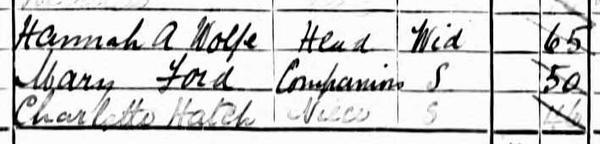 Hannah A Wolfe Head Wid 65
Mary Ford Companion S 50
Charlotte Hatch Niece S